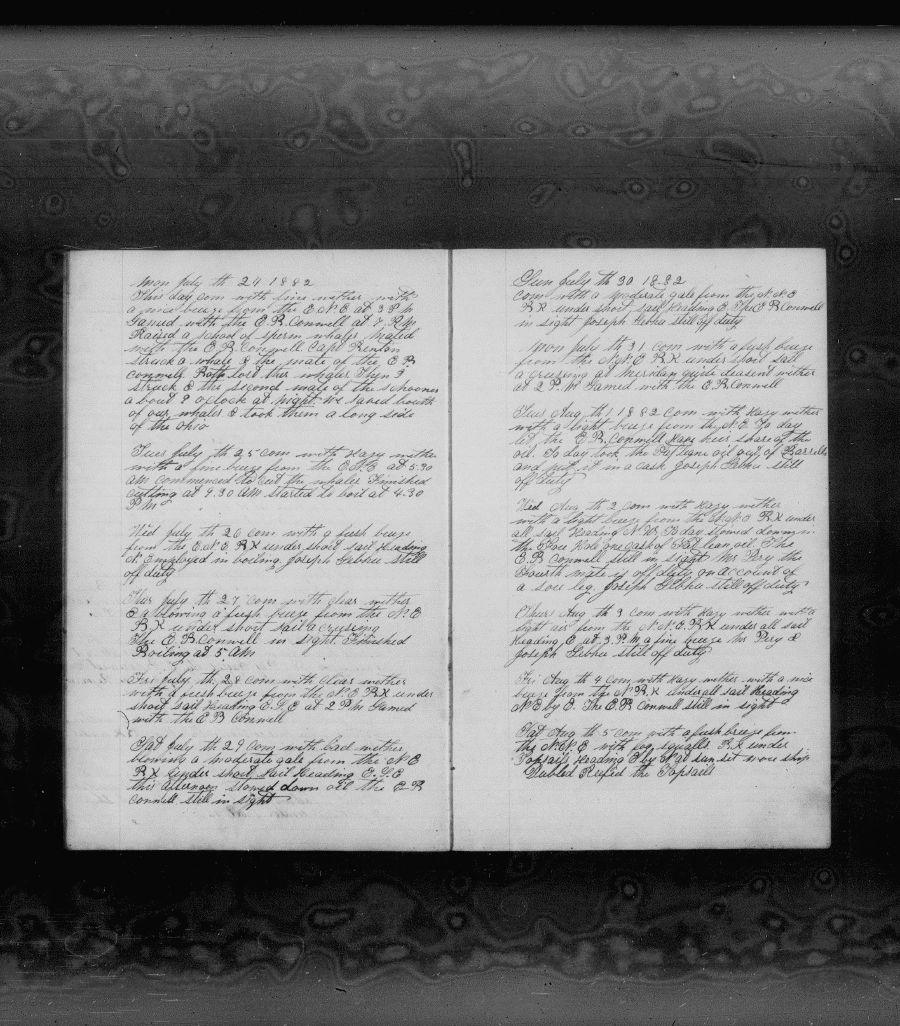 Mon July th 24 1882
This day com with fine wether with
a nice breze from the E.N.E at 3 P M
Gamed with the E.B.Conwell at 7 P.M.
Raised a school of sperm whales Mated
with the E B Conwell Capt
struck a whale & the mate of the E B
connell Both lost ther whales then 3
struck & the second mate of the schooner
a bout 8 oclock at night We saved bouth
of our whales & took them a long side
of the Ohio
Tues July th 25 com with Hazy wether
with a fine breze from the E.N.E at 5.30
AM commenced to cut the whales Finished
cutting at 9.30 AM started to boil at 4.30
P M
Wed July th 26 com with a fresh breze
from the E.N E R X under short sail Heading
N. Employed in boiling. Joseph Sebhia Still
off duty
Thur July th 27 com with clear wether
& a blowing a fresh breze from the N.E
R.X under short sail a crusing
The E B.Connell in sight Finished
Boiling at 5 AM
Fri July th 28 com with clear wether
with a fresh breze from the N.E R X under
short sail Heading E.S.E at 2 P M Gamed
with the E B Connell
Sat July th 29 Com with bad wether
blowing a moderate gale from the N E
R X under short sail Heading E.S.E
this afternoon stowed down oil the E B
connell still in sight
Sun July th 30 1882
com with a moderate gale from the N.N E
R X under short sail Heading E The E B Connwell
in sight Joseph Sebhia still off duty
Mon July th 31 com with a fresh breze
from the N.N.E R X under short sail
a crusing at Meridian quite pleasent wether
at 2 P.M Gamed with the E.B.Connell
Tues Aug th 1 1882 Com with Hazy wether
with a light breze from the N.E To day
let the E B.Connwell Have heer share of the
oil. To day took the oil out of Barrells
and put it in a cask Joseph Sebhia still
off duty
Wed Aug th 2 com with Hazy wether
with a light breze from the N.N.E R X under
all sail Heading N.W. To day stowed down in
the Fore Hole one cask of Fat lean oil. The
E.B Connell still in sight Mr Pery the
Fourth mate is off duty on account of
a sore leg. Joseph Sebhia still off duty
Thurs Aug th 3 com with Hazy wether with a
light air from the N.N.E R X under all sail
Heading E at 3. P.M a fine breze Mr Pery &
Joseph Sebhia still off duty
Fri Aug th 4 com with Hazy wether with a nice
breze from the N. R.X under all sail Heading
N E by E. The E.B Connell still in sight
Sat Aug th 5 Com with a fresh breze from
the N.N.E with fog squalls. R.X under
Topsails Heading E by N at sun set wore ship
Dubled Refed the Topsails